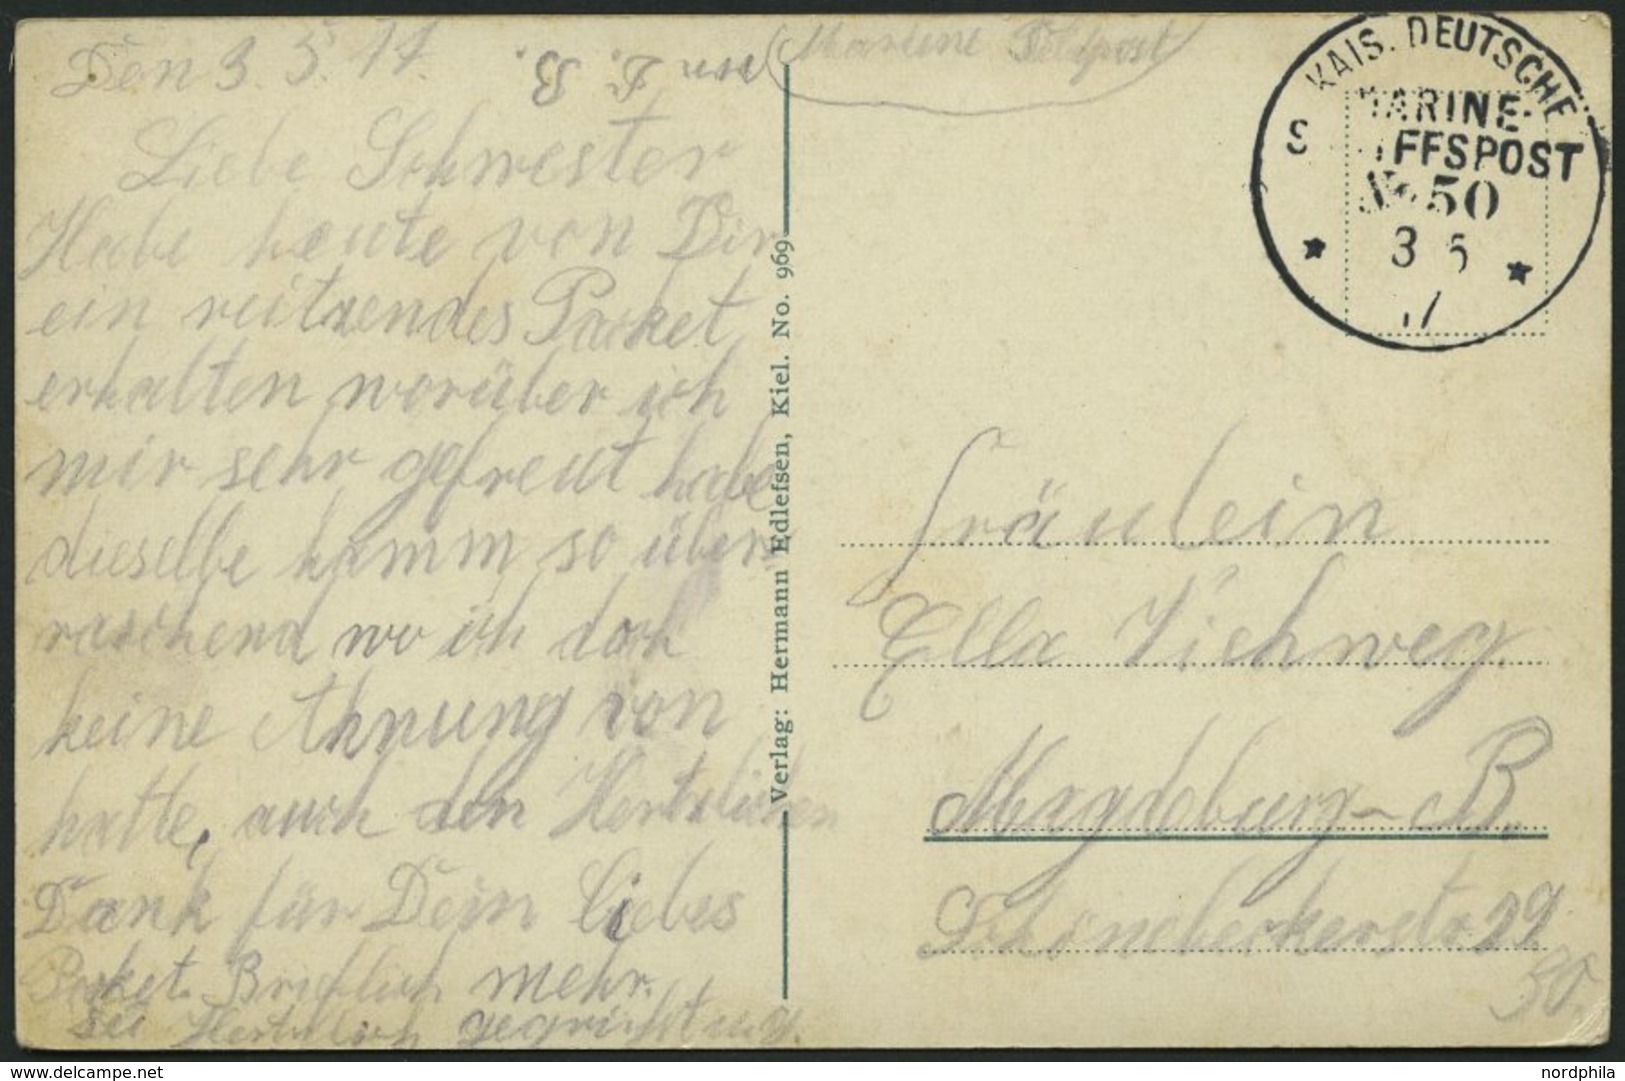 Den 3. 5. 17.
Mariene Feldpost
Liebe Schwester
Habe heute von Dir
ein reitzendes Packet
erhalten worüber ich
mir sehr gefreut habe
dieselbe kamm so über
raschend wo ich doch
keine Ahnung von
hatte, auch den Hertzlichen
Dank für Dein liebes
Packet. Brieflich mehr.
Sei Hertzlich gegrüßt
Verlag: Hermann Edlefsen, Kiel. No. 969
KAIS. DEUTSCHE
MARINE-
SCHIFFSPOST
No. 50
3 5
17
Fräulein
Ella Viehweg
Magdeburg-B.
Schönebeckerstr 29
30.
nordphila